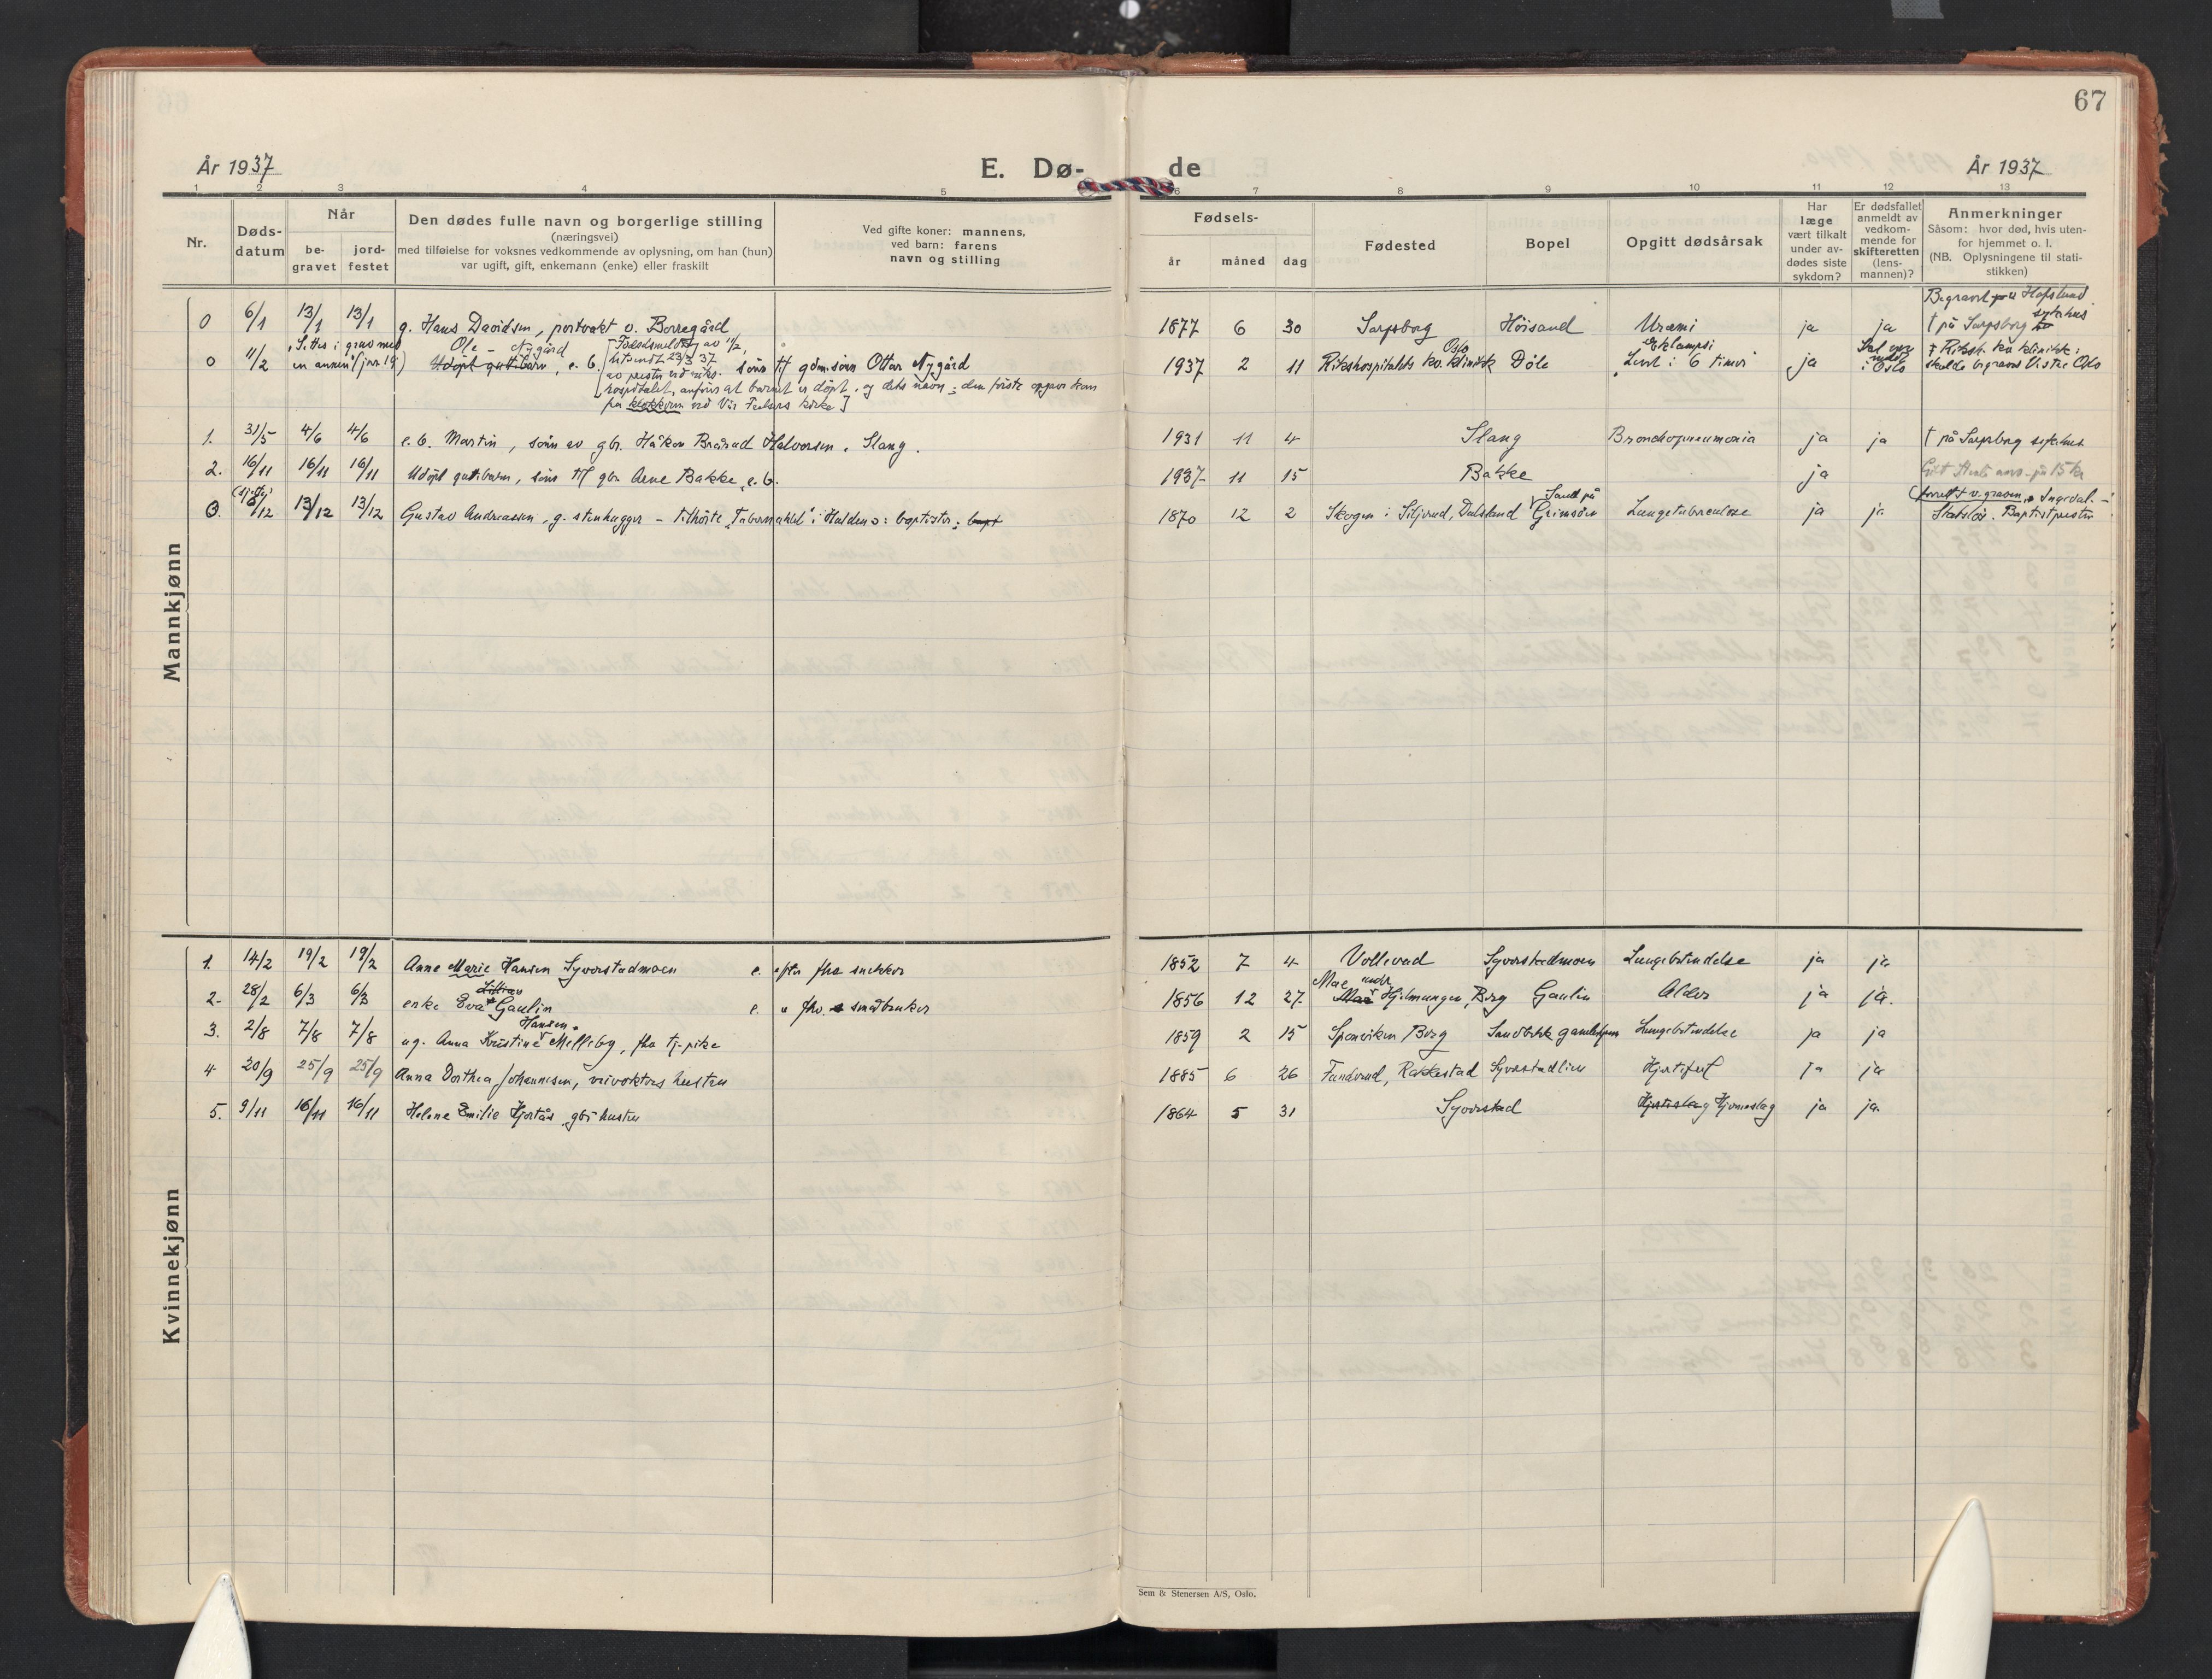 67
År 1937 E. Dø- de År 1937
1 2 3 4 5 6 7 8 9 10 11 12 13
Nr. Døds-datum Når be-gravet jord-festet Den dødes fulle navn og borgerlige stilling (næringsvei) med tilføielse for voksnes vedkommende av oplysning, om han (hun) var ugift, gift, enkemann (enke) eller fraskilt Ved gifte koner: mannens, ved barn: farens navn og stilling Fødsels- år måned dag Fødested Bopel Opgitt dødsårsak Har læge vært tilkalt under av-dødes siste sykdom? Er dødsfallet anmeldt av vedkom-mende for skifteretten (lens-mannen)? Anmerkninger Såsom: hvor død, hvis uten-for hjemmet o. l. (NB. Oplysningene til stati-stikken)
Mannkjønn
Begravet på Hafslund
0 6/1 13/1 13/1 g. Hans Davidsen, portvakt v. Borregård 1877 6 30 Sarpsborg Høisand Uræmi ja ja † på Sarpsborg sykehus
Settes i grav med Ole - Nygård [Fødselsmelding av 11/2, Oslo Eklampsi
0 11/2 en annen (jvr 19) Udøpt guttebarn, e. b. utsendt 23/3 37 sønn til gdm.sønn Ottar Nygård 1937 2 11 Rikshospitalets kv. klinikk Døle "Levet i 6 timer" ja i Oslo † Riksh. kv. klinikk: skulde begraves Vestre Oslo
av presten ved riks-
hospitalet, anfører at barnet er døpt, og dets navn; den første opgave kom
fra klokkeren ved Vår Frelsers kirke]
1. 31/5 4/6 4/6 e. b. Martin, sønn av gbr. Håkon Brårud Halvorsen, Slang. 1931 11 4 Slang Bronchopneumonia ja ja † på Sarpsborg sykehus
2. 16/11 16/11 16/11 Udøpt guttebarn, sønn til gbr. Arne Bakke, e. b. 1937 11 15 Bakke ja
0. (sjette) 6/12 13/12 13/12 Gustav Andreassen, g. stenhugger - tilhørte "Tabernaklet" i Halden ɔ: baptister; bapt 1870 12 2 Skogen i Siljerud, Dalsland Sand på Grimsøen Lungetuberculose ja ja (forrettet v. graven, Ingedal. - Statsløs. Baptistpresten
Kvinnekjønn
1. 14/2 19/2 19/2 Anne Marie Hansen Syverstadmoen e. efter fhv. snekker 1852 7 4 Vollerud Syverstadmoen Lungebetendelse ja ja
2. 28/2 6/3 6/3 enke Eva Gaulin e. " fhv. småbruker 1856 12 27 Moe under Hjelmungen, Borg Gaulin Alder ja ja.
3. 2/8 7/8 7/8 ug. Anna Kristine Hansen Melleby, fhv. tj.pike 1859 2 15 Sponviken Borg Sandbekk gamlehjem Lungebetendelse ja ja
4 20/9 25/9 25/9 Anna Dorthea Johannesen, veivokters hustru 1885 6 26 Fundrud, Rakkestad Syverstadlien Hjertefeil ja ja
5. 9/11 16/11 16/11 Helene Emilie Hjortås, gbr. hustru 1864 5 31 Syverstad Hjerteslag Hjerneslag ja ja.
Sem & Stenersen A/S, Oslo.